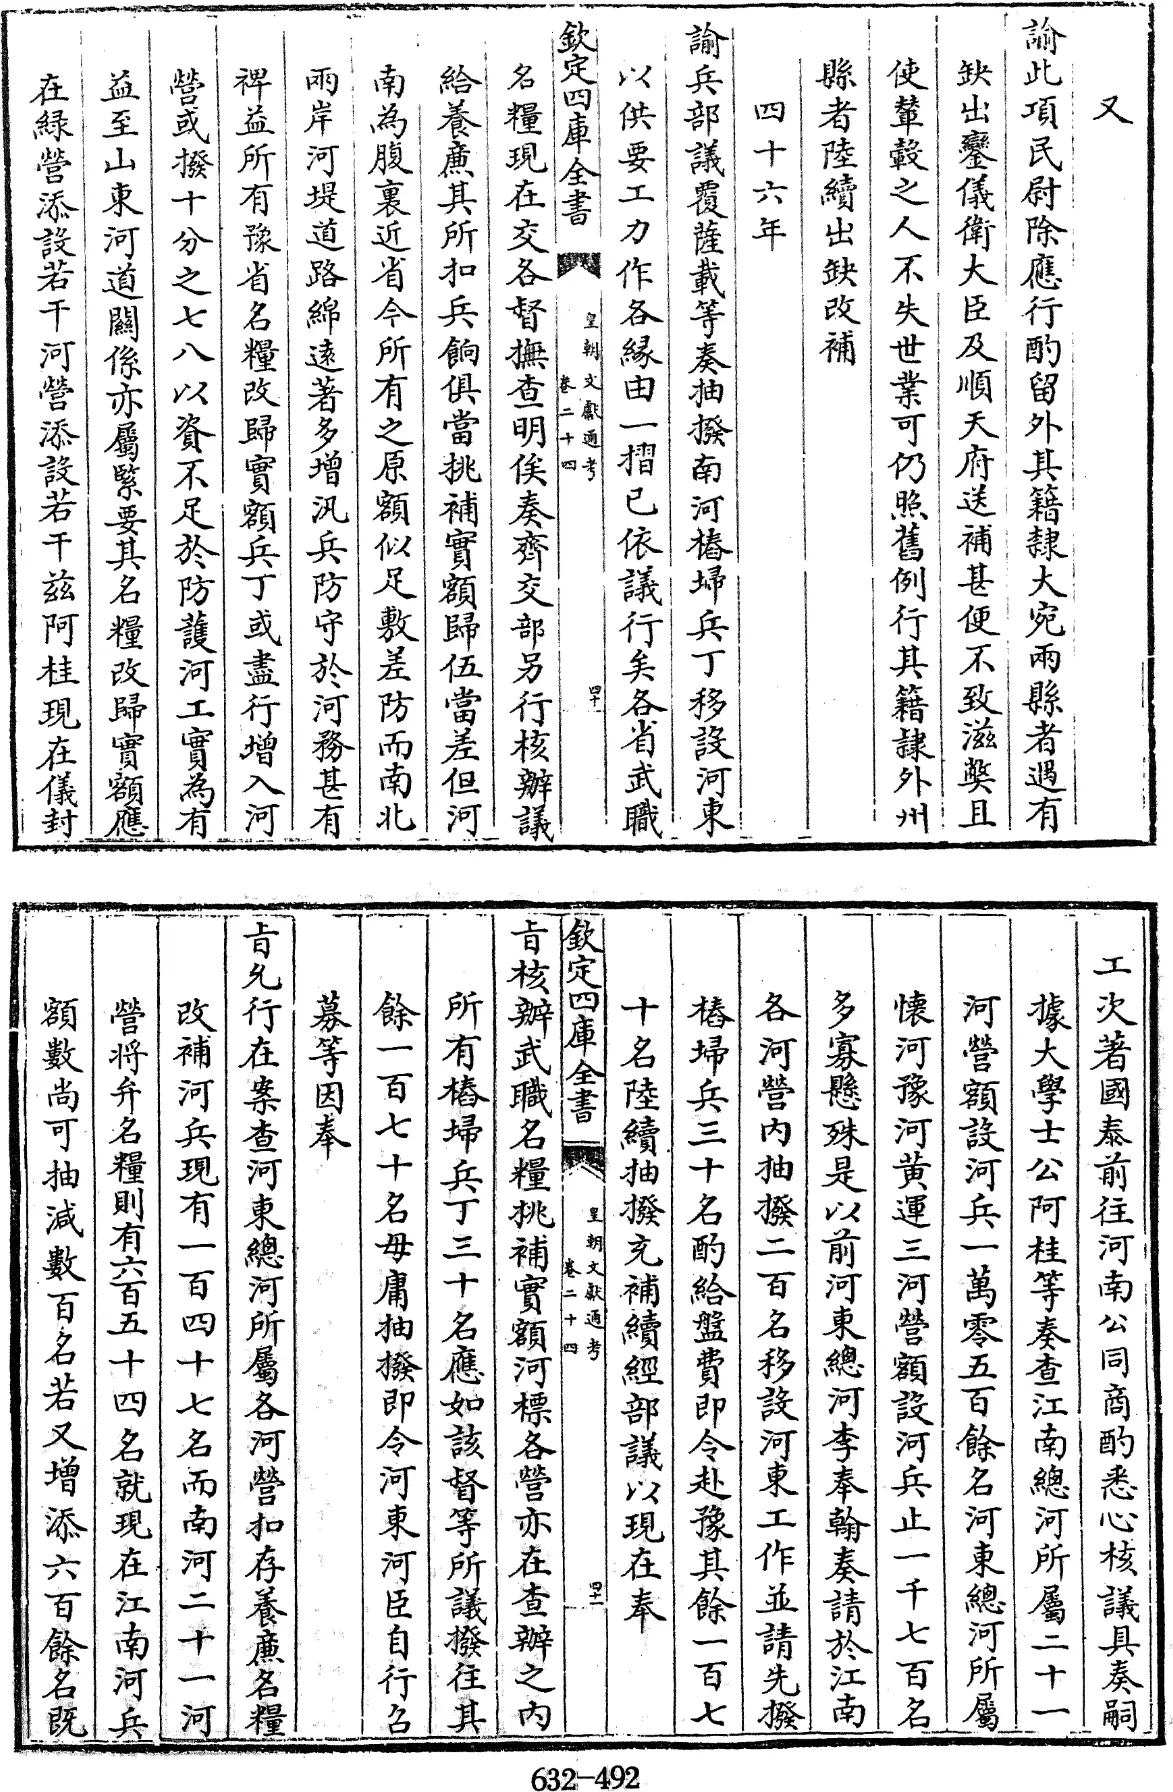 又
諭此項民尉除應行酌留外其籍隸大宛兩縣者遇有
缺出鑾儀衛大臣及順天府送補甚便不致滋弊且
使輦轂之人不失世業可仍照舊例行其籍隸外州
縣者陸續出缺改補
四十六年
諭兵部議覆薩載等奏抽撥南河樁埽兵丁移設河東
以供要工力作各緣由一摺已依議行矣各省武職
欽定四庫全書
皇朝文獻通考
卷二十四
四十
名糧現在交各督撫查明俟奏齊交部另行核辦議
給養廉其所扣兵餉俱當挑補實額歸伍當差但河
南為腹裏近省今所有之原額似足敷差防而南北
兩岸河堤道路綿遠著多增汛兵防守於河務甚有
裨益所有豫省名糧改歸實額兵丁或盡行增入河
營或撥十分之七八以資不足於防護河工實為有
益至山東河道關係亦屬緊要其名糧改歸實額應
在綠營添設若干河營添設若干茲阿桂現在儀封
工次著國泰前往河南公同商酌悉心核議具奏嗣
據大學士公阿桂等奏查江南總河所屬二十一
河營額設河兵一萬零五百餘名河東總河所屬
懷河豫河黃運三河營額設河兵止一千七百名
多寡懸殊是以前河東總河李奉翰奏請於江南
各河營內抽撥二百名移設河東工作並請先撥
樁埽兵三十名酌給盤費即令赴豫其餘一百七
十名陸續抽撥充補續經部議以現在奉
欽定四庫全書
皇朝文獻通考
卷二十四
四十一
旨核辦武職名糧挑補實額河標各營亦在查辦之內
所有樁埽兵丁三十名應如該督等所議撥往其
餘一百七十名毋庸抽撥即令河東河臣自行召
募等因奉
旨允行在案查河東總河所屬各河營扣存養廉名糧
改補河兵現有一百四十七名而南河二十一河
營將弁名糧則有六百五十四名就現在江南河兵
額數尚可抽減數百名若又增添六百餘名既
632-492